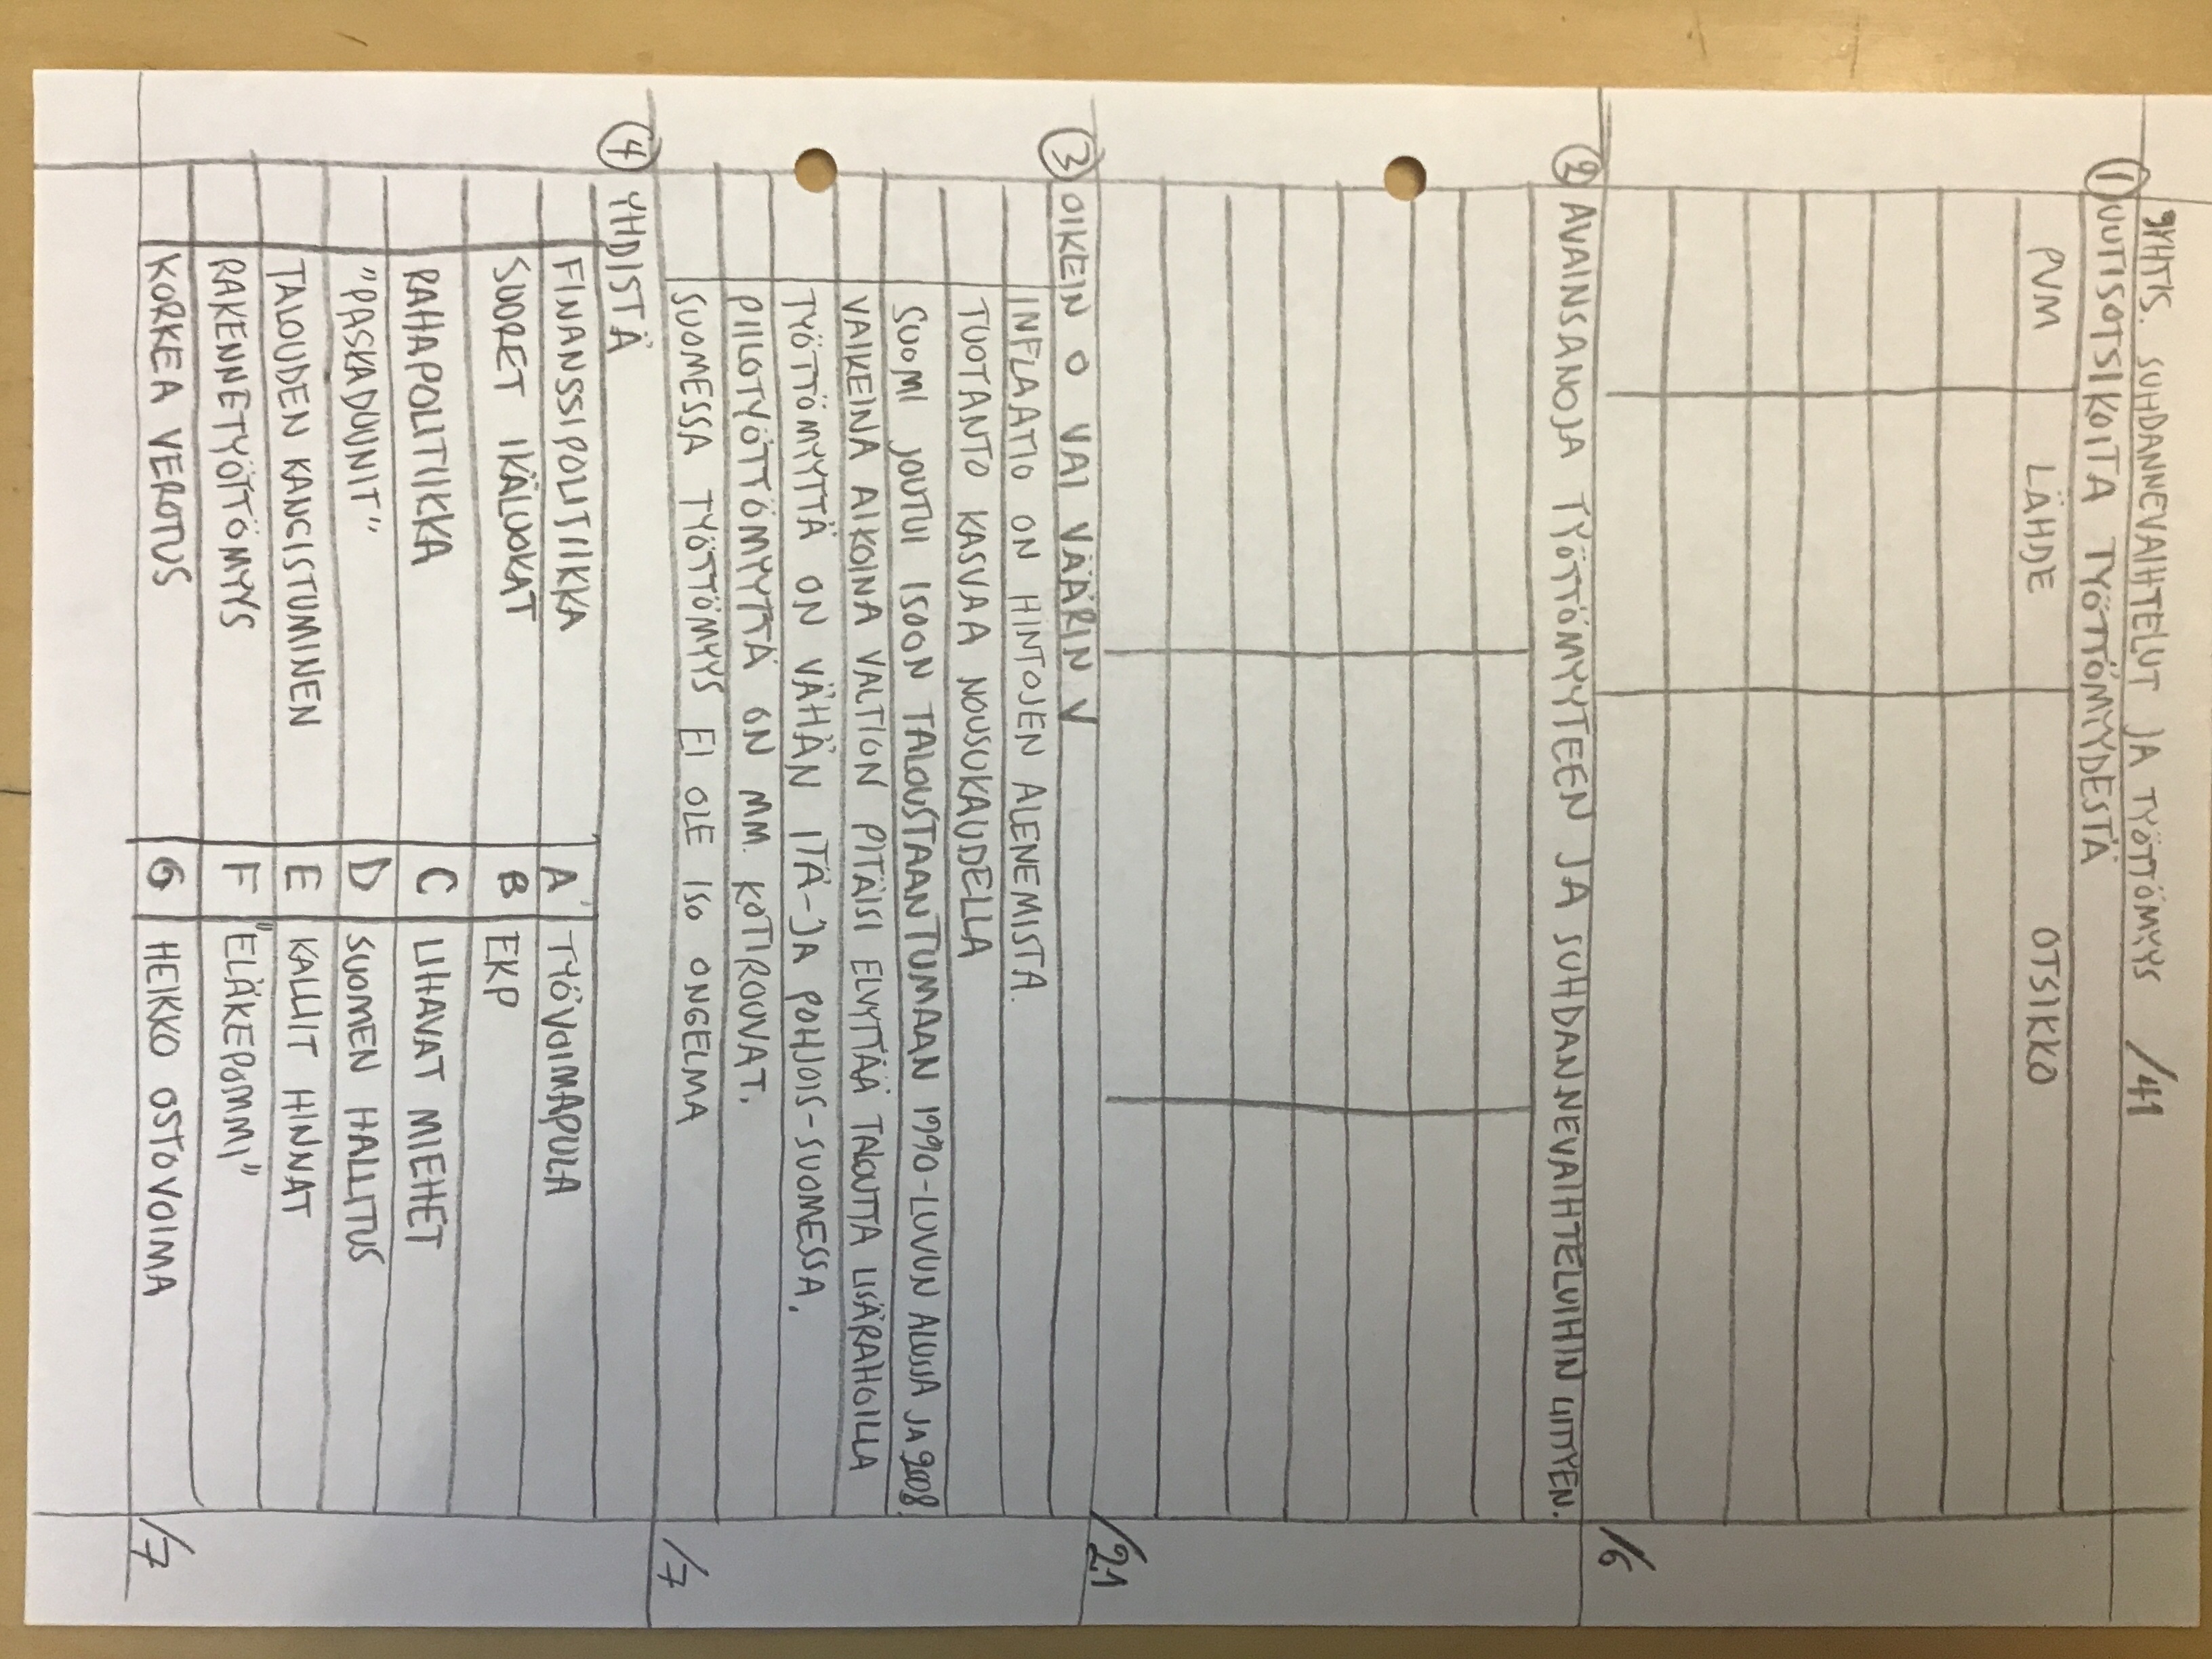 9 YHTIS. SUHDANNEVAIHTELUT JA TYÖTTÖMYYS /41
① UUTISOTSIKOITA TYÖTTÖMYYDESTÄ
PVM LÄHDE OTSIKKO
/6
② AVAINSANOJA TYÖTTÖMYYTEEN JA SUHDANNEVAIHTELUIHIN LIITTYEN.
/21
③ OIKEIN O VAI VÄÄRIN V
INFLAATIO ON HINTOJEN ALENEMISTA.
TUOTANTO KASVAA NOUSUKAUDELLA
SUOMI JOUTUI ISOON TALOUSTAANTUMAAN 1990-LUVUN ALUSSA JA 2008.
VAIKEINA AIKOINA VALTION PITÄISI ELVYTTÄÄ TALOUTTA LISÄRAHOILLA
TYÖTTÖMYYTTÄ ON VÄHÄN ITÄ- JA POHJOIS-SUOMESSA.
PIILOTYÖTTÖMYYTTÄ ON MM. KOTIROUVAT.
SUOMESSA TYÖTTÖMYYS EI OLE ISO ONGELMA
/7
④ YHDISTÄ
FINANSSIPOLITIIKKA A TYÖVOIMAPULA
SUURET IKÄLUOKAT B EKP
RAHAPOLITIIKKA C LIHAVAT MIEHET
"PASKADUUNIT" D SUOMEN HALLITUS
TALOUDEN KANGISTUMINEN E KALLIIT HINNAT
RAKENNETYÖTTÖMYYS F "ELÄKEPOMMI"
KORKEA VEROTUS G HEIKKO OSTOVOIMA
/7